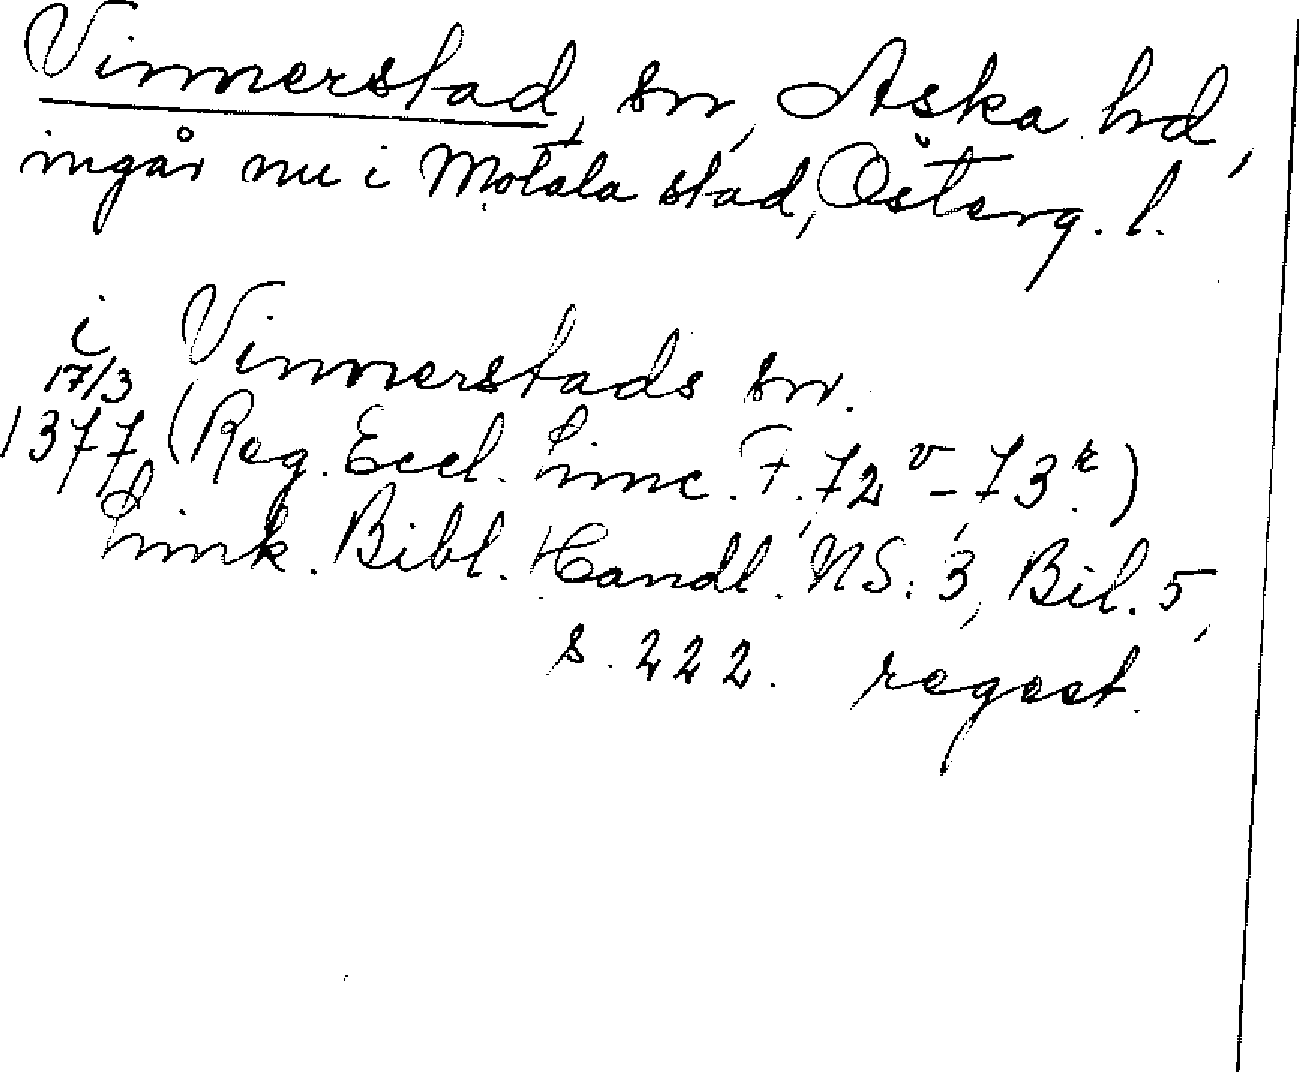 Vinnerstad, sn, Aska hd,
ingår nu i Motala stad, Österg. l.
i Vinnerstads sn.
17/3
1377 (Reg. Eccl. Linc. F. 72v-73r)
Link. Bibl. Handl. NS: 3, Bil. 5,
s. 222. regest.